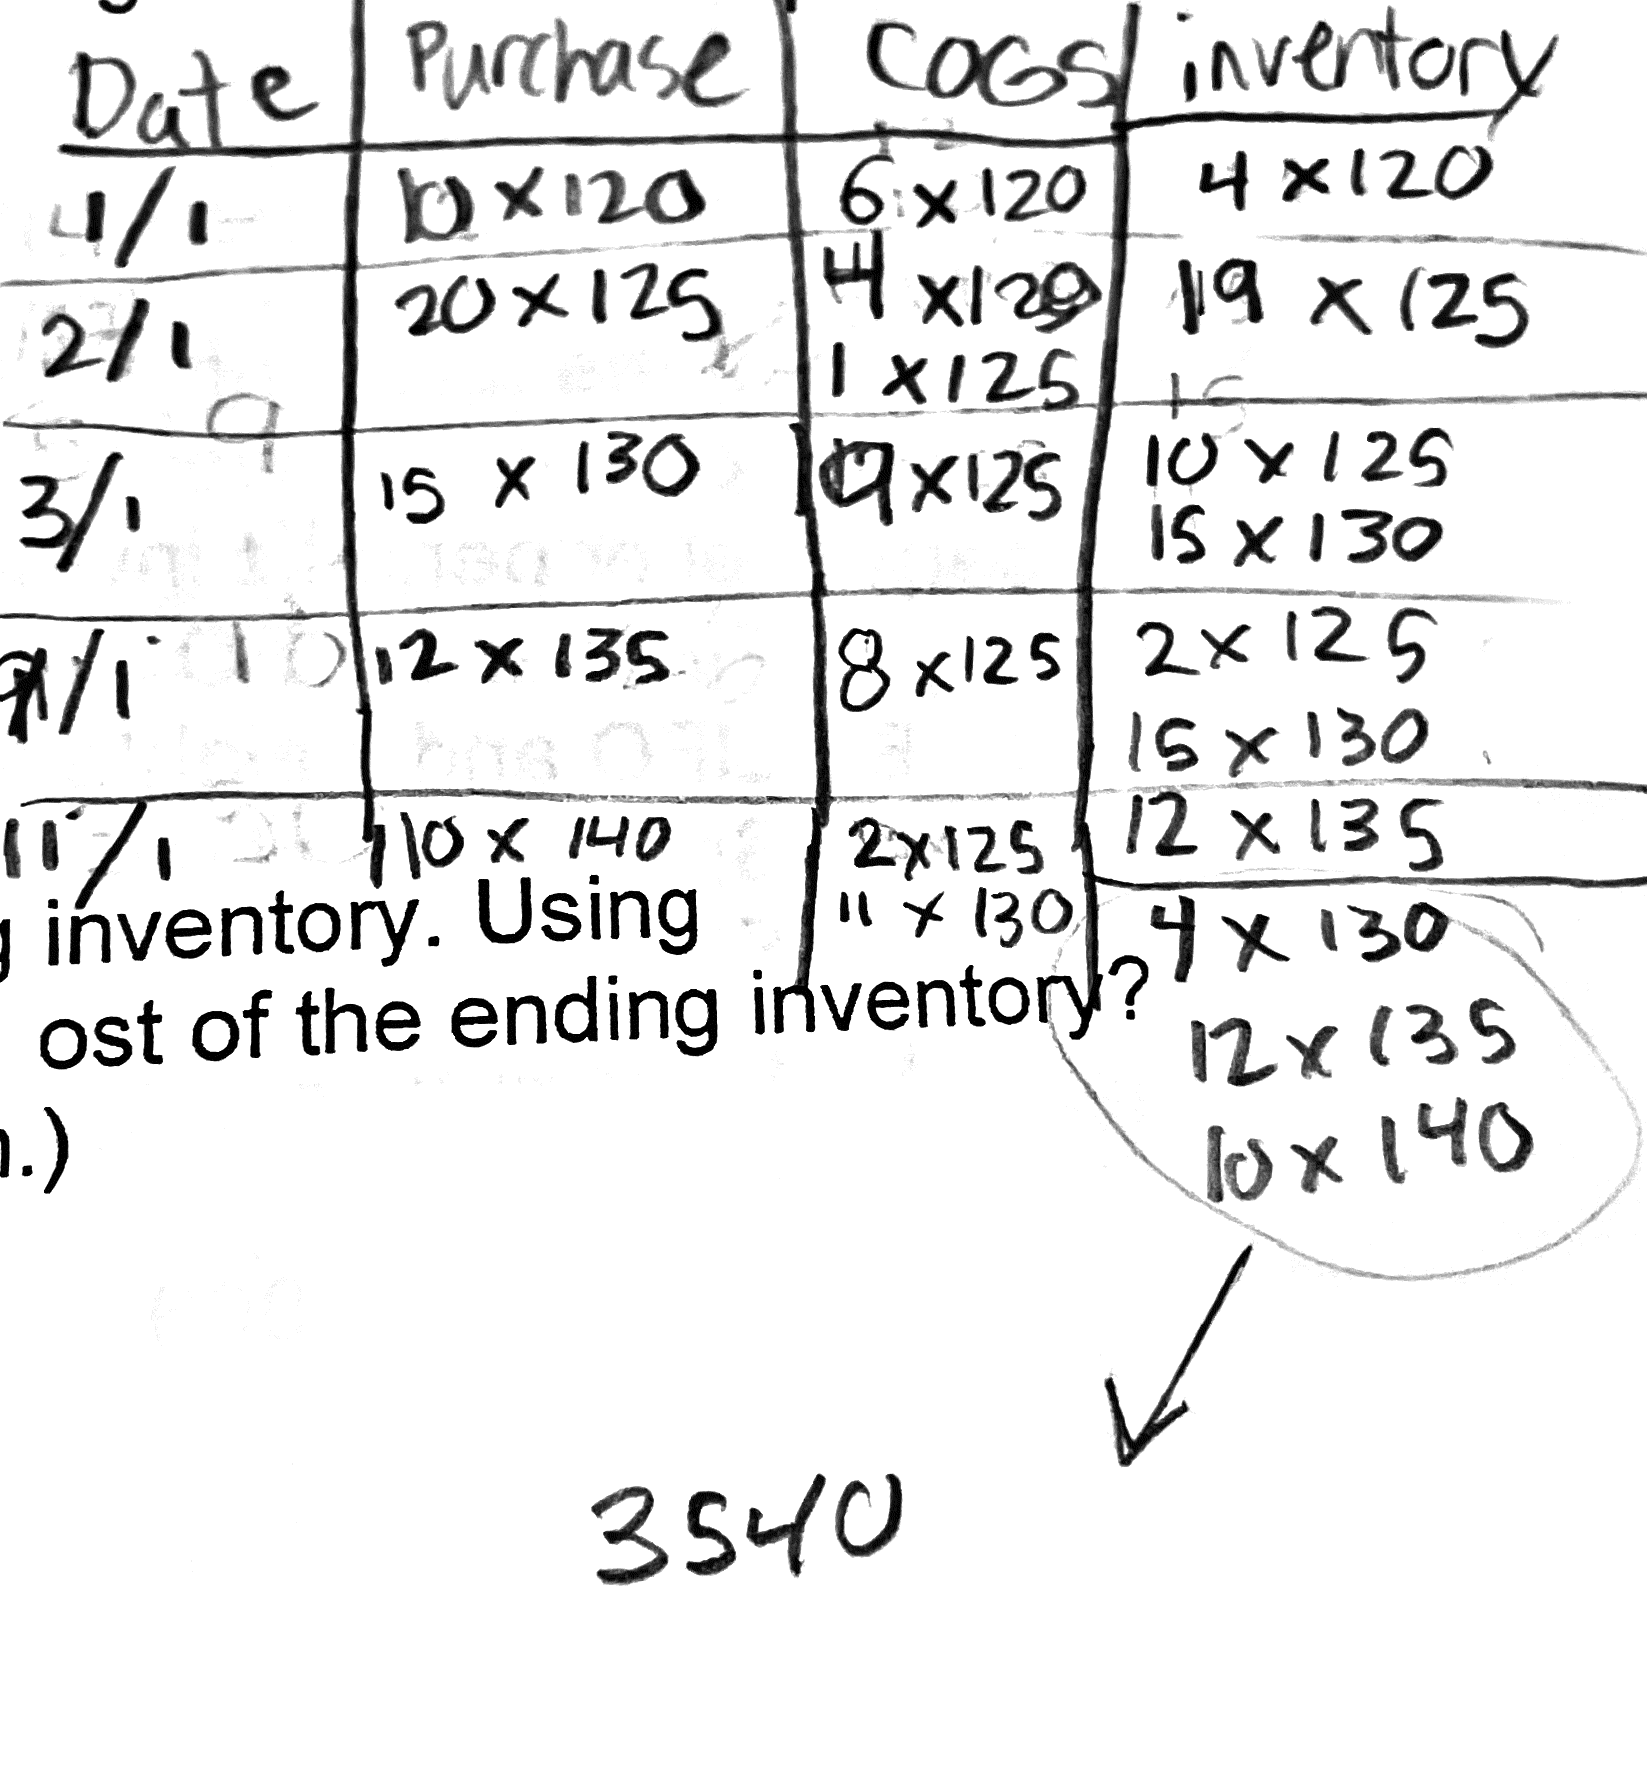 Date Purchase COGS inventory
1/1 10 x 120 6 x 120 4 x 120
2/1 20 x 125 4 x 120 19 x 125
1 x 125
3/1 15 x 130 9 x 125 10 x 125
15 x 130
9/1 12 x 135 8 x 125 2 x 125
15 x 130
12 x 135
11/1 10 x 140 2 x 125
11 x 130 4 x 130
inventory. Using
ost of the ending inventory?
12 x 135
10 x 140
.)
3540